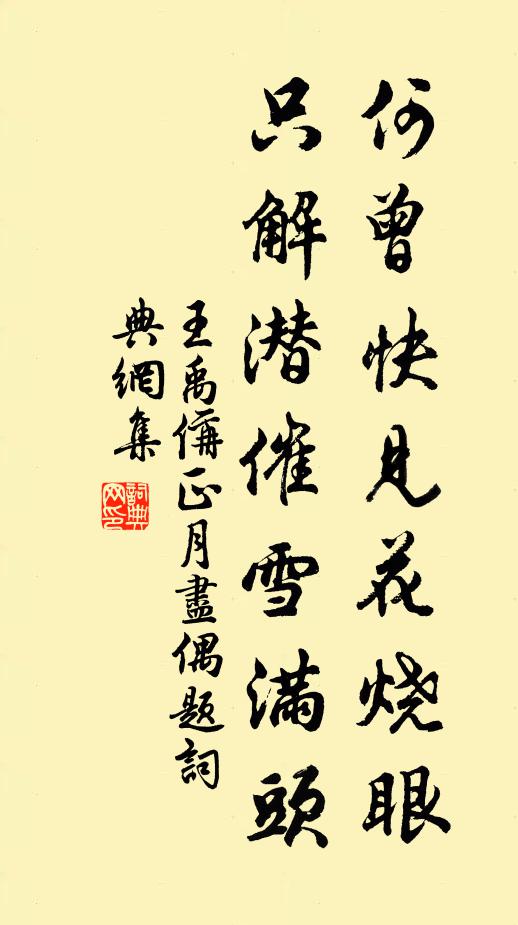 何曾快见花烧眼
只解潜催雪满頭
王禹偁正月盡偶题詞
典網集
詞典網印